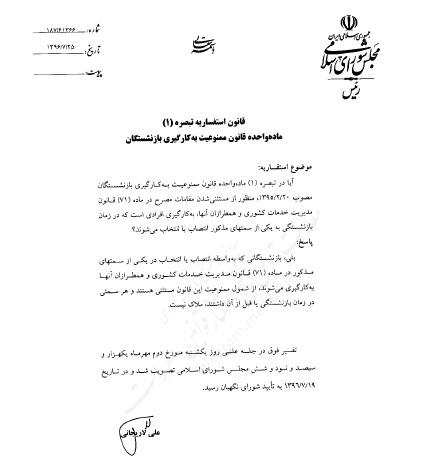 جمهوری اسلامی ایران
مجلس شورای اسلامی
رئیس
شماره: ۱۸۷/۴۱۳۶۶
تاریخ: ۱۳۹۶/۷/۲۵
پیوست:
قانون استفساریه تبصره (۱)
ماده‌واحده قانون ممنوعیت به‌کارگیری بازنشستگان
موضوع استفساریه:
آیا در تبصره (۱) ماده‌واحده قانون ممنوعیت به‌کارگیری بازنشستگان
مصوب ۱۳۹۵/۲/۲۰، منظور از مستثنی‌شدن مقامات مصرح در ماده (۷۱) قانون
مدیریت خدمات کشوری و همطرازان آنها، به‌کارگیری افرادی است که در زمان
بازنشستگی به یکی از سمتهای مذکور انتصاب یا انتخاب می‌شوند؟
پاسخ:
بلی، بازنشستگانی که به‌واسطه انتصاب یا انتخاب در یکی از سمتهای
مذکور در ماده (۷۱) قانون مدیریت خدمات کشوری و همطرازان آنها
به‌کارگیری می‌شوند، از شمول ممنوعیت این قانون مستثنی هستند و هر سمتی
در زمان بازنشستگی یا قبل از آن داشتند، ملاک نیست.
تفسیر فوق در جلسه علنی روز یکشنبه مورخ دوم مهرماه یکهزار و
سیصد و نود و شش مجلس شورای اسلامی تصویب شد و در تاریخ
۱۳۹۶/۷/۱۹ به تأیید شورای نگهبان رسید.
علی لاریجانی